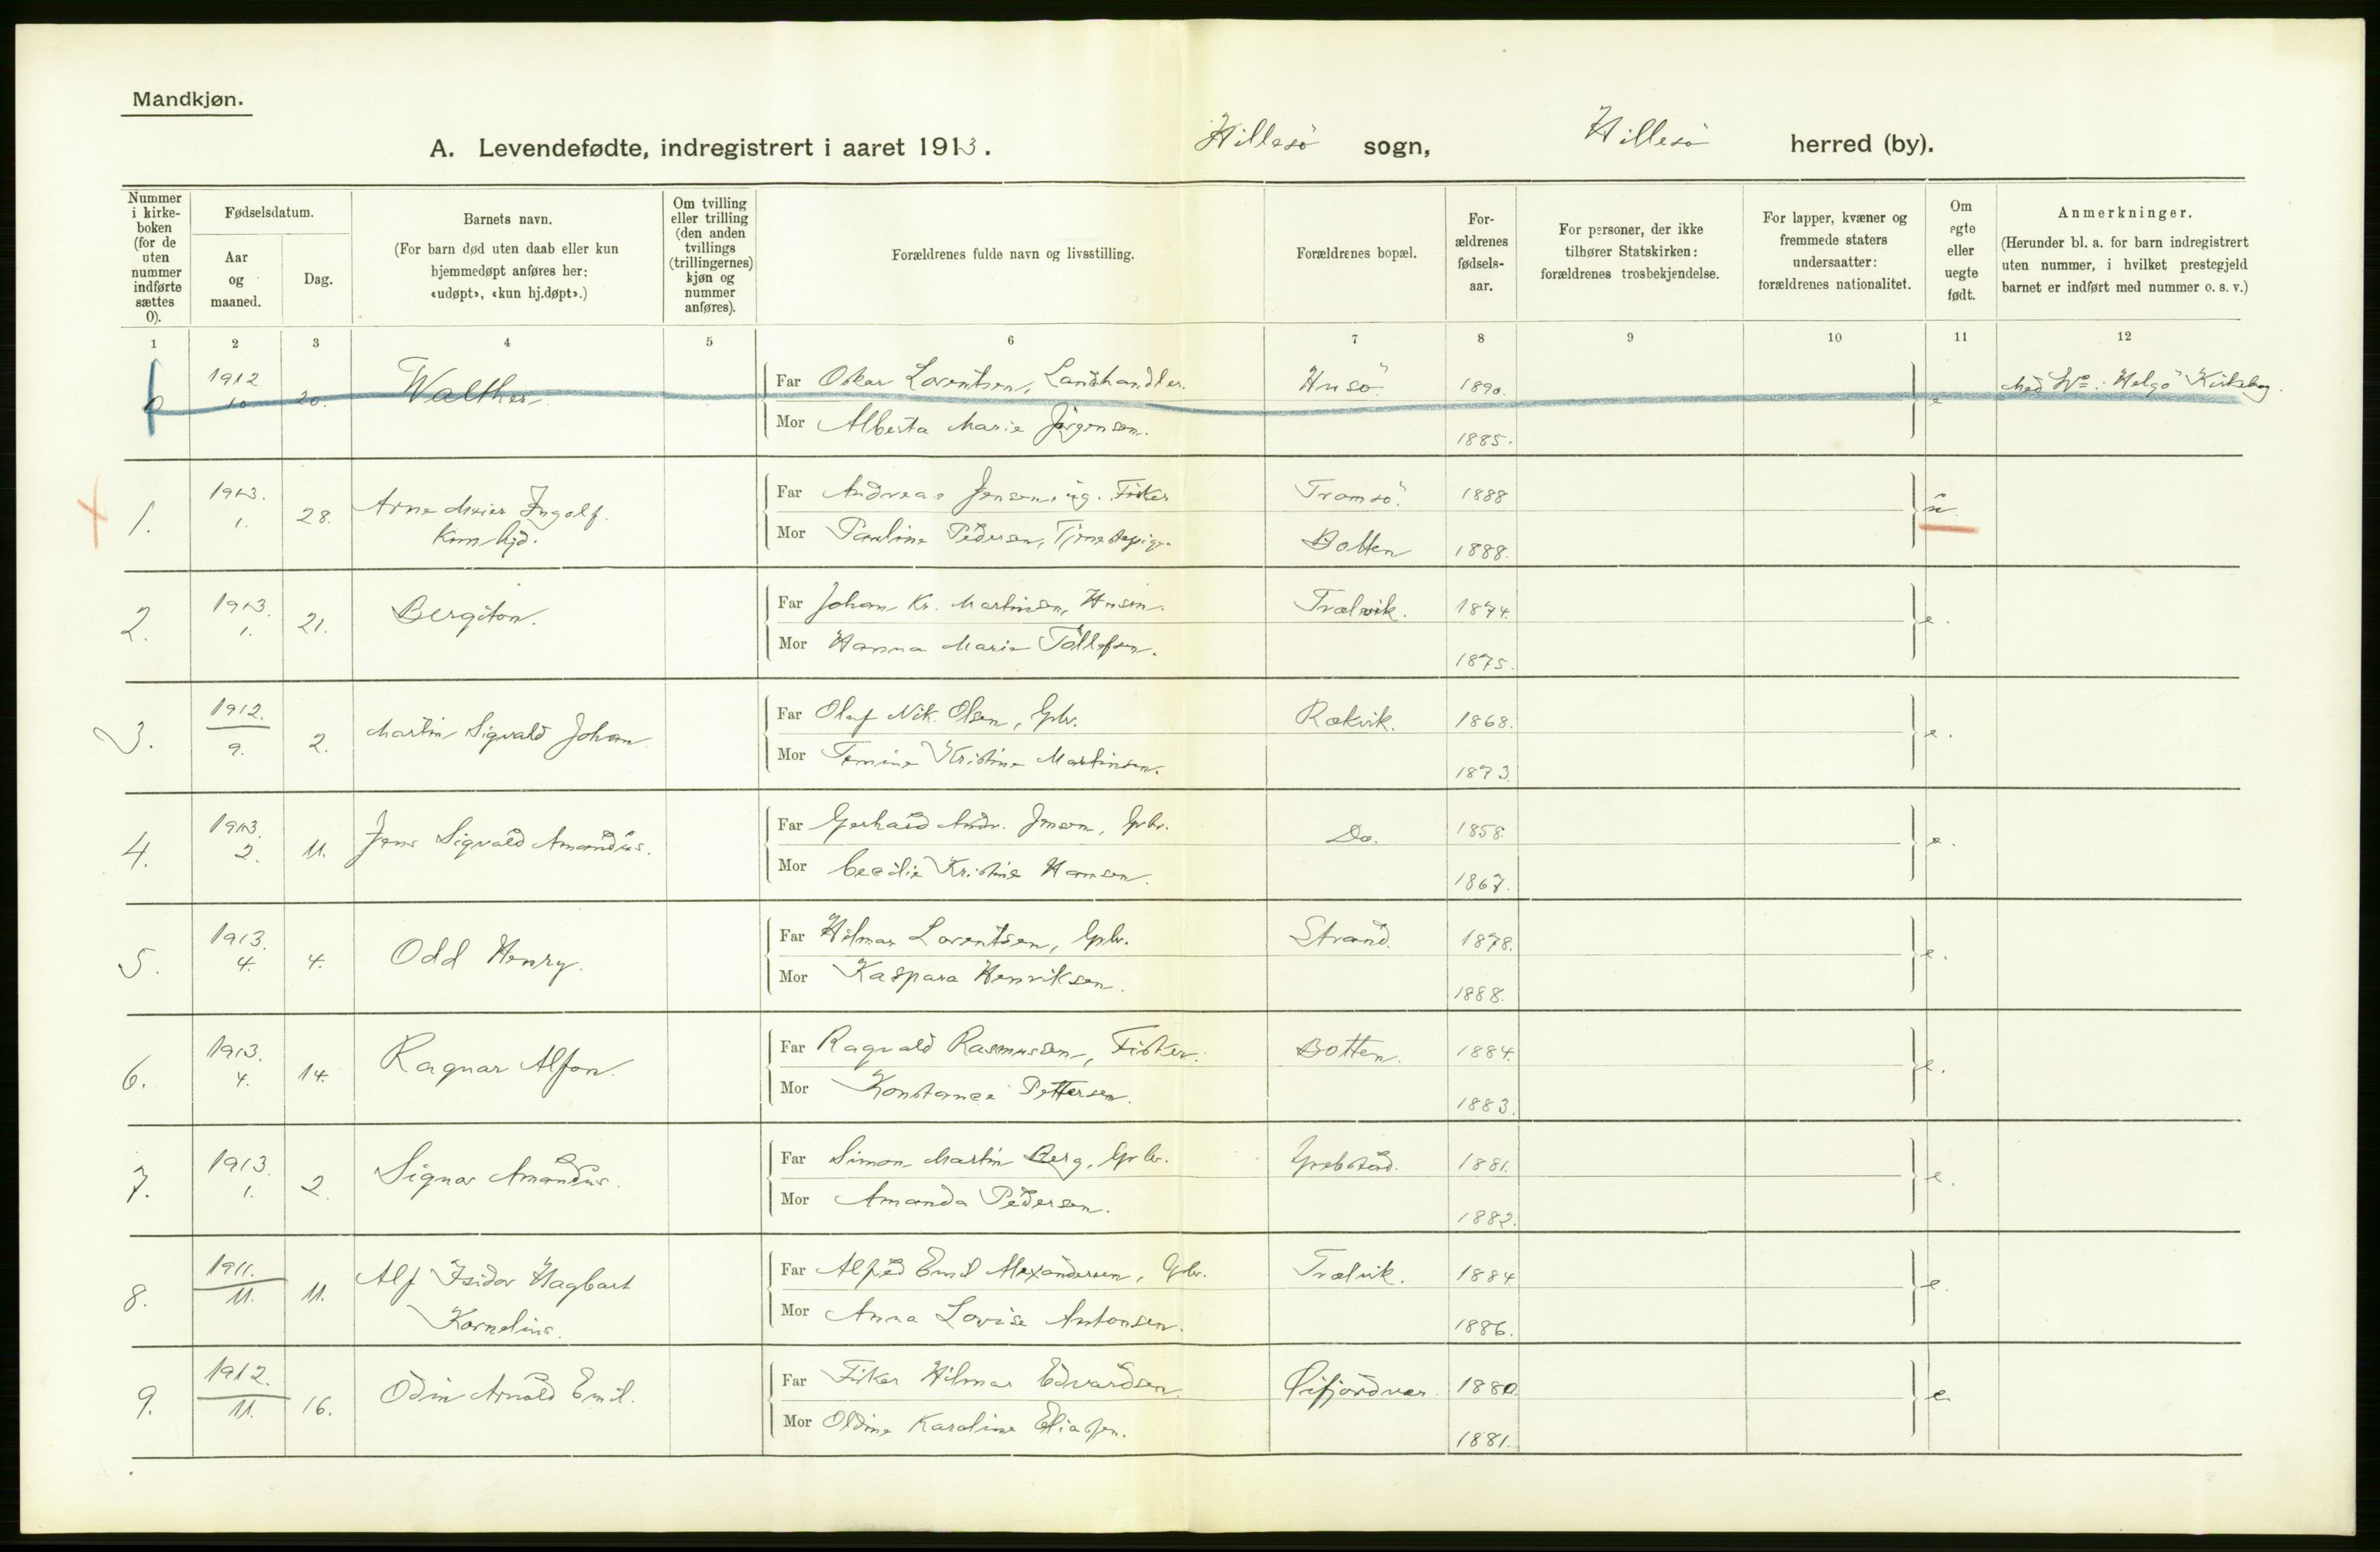 Mandkjøn.
A. Levendefødte, indregistrert i aaret 1913. Hillesö sogn, Hillesö herred (by).
Nummer i kirke-boken (for de uten nummer indførte sættes 0).
Fødselsdatum.
Aar og maaned.
Dag.
Barnets navn.
(For barn død uten daab eller kun hjemmedøpt anføres her: «udøpt», «kun hj.døpt».)
Om tvilling eller trilling (den anden tvillings (trillingernes) kjøn og nummer anføres).
Forældrenes fulde navn og livsstilling.
Forældrenes bopæl.
For-ældrenes fødsels-aar.
For personer, der ikke tilhører Statskirken: forældrenes trosbekjendelse.
For lapper, kvæner og fremmede staters undersaatter: forældrenes nationalitet.
Om egte eller uegte født.
Anmerkninger.
(Herunder bl. a. for barn indregistrert uten nummer, i hvilket prestegjeld barnet er indført med nummer o. s. v.)
1 2 3 4 5 6 7 8 9 10 11 12
0 1912 10 20. Walther Far Oskar Lorentsen, Landhandler. Husö 1890. e Med No. i Helgö Kirkebog.
Mor Alberta Marie Jørgensen. 1885.
1. 1913. 1. 28. Arne Meier Ingolf. Far Andreas Jensen, ug. Fisker Tromsö. 1888 u.
Kun hjd. Mor Pauline Pedersen, Tjenestepige. Botten 1888.
2. 1913. 1. 21. Bergiton. Far Johan Kr. Martinsen, Husm. Trælvik. 1874. e.
Mor Hanna Marie Tollefsen. 1875.
3. 1912. 9. 2. Martin Sigvald Johan Far Olaf Nik. Olsen, Gbr. Rækvik. 1868. e.
Mor Kristine Martinsen. 1873.
4. 1913. 2. 11. Jens Sigvald Amandus. Far Gerhard Andr. Jensen, Gbr. Do. 1858. e.
Mor Cecilie Kristine Hansen. 1867.
5. 1913. 4. 4. Odd Henry. Far Hilmar Lorentsen, Gbr. Strand. 1878. e.
Mor Kaspara Henriksen. 1888.
6. 1913. 4. 14. Ragnar Alfon. Far Ragvald Rasmussen, Fisker. Botten. 1884. e.
Mor Konstance Pettersen. 1883.
7. 1913. 1. 2. Signar Amandus. Far Simon Martin Berg, Gbr. Grebstad. 1881. e.
Mor Amanda Pedersen. 1882.
8. 1911. 11. 11. Alf Isidor Hagbart Far Alfred Emil Alexandersen, Gbr. Trælvik. 1884 e.
Kornelius. Mor Anna Lovise Antonsen. 1886.
9. 1912. 11. 16. Odin Arnold Emil. Far Fisker Hilmar Edvardsen. Øifjordvær. 1880. e
Mor Oldine Karoline Eliassen. 1881.